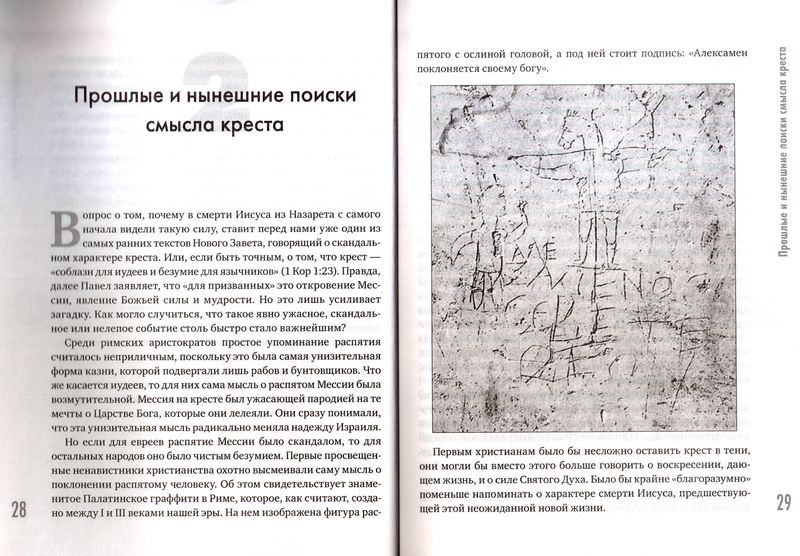 2
Прошлые и нынешние поиски
смысла креста
Вопрос о том, почему в смерти Иисуса из Назарета с самого
начала видели такую силу, ставит перед нами уже один из
самых ранних текстов Нового Завета, говорящий о скандаль-
ном характере креста. Или, если быть точным, о том, что крест —
«соблазн для иудеев и безумие для язычников» (1 Кор 1:23). Правда,
далее Павел заявляет, что «для призванных» это откровение Мес-
сии, явление Божьей силы и мудрости. Но это лишь усиливает
загадку. Как могло случиться, что такое явно ужасное, скандаль-
ное или нелепое событие столь быстро стало важнейшим?
Среди римских аристократов простое упоминание распятия
считалось неприличным, поскольку это была самая унизительная
форма казни, которой подвергали лишь рабов и бунтовщиков. Что
же касается иудеев, то для них сама мысль о распятом Мессии была
возмутительной. Мессия на кресте был ужасающей пародией на те
мечты о Царстве Бога, которые они лелеяли. Они сразу понимали,
что эта унизительная мысль радикально меняла надежду Израиля.
Но если для евреев распятие Мессии было скандалом, то для
остальных народов оно было чистым безумием. Первые просвещен-
ные ненавистники христианства охотно высмеивали саму мысль о
поклонении распятому человеку. Об этом свидетельствует знаме-
нитое Палатинское граффити в Риме, которое, как считают, созда-
но между I и III веками нашей эры. На нем изображена фигура рас-
28
пятого с ослиной головой, а под ней стоит подпись: «Алексамен
поклоняется своему богу».
ΑΛΕ
ΞΑΜΕΝΟС
СΕΒΕΤΕ
Первым христианам было бы несложно оставить крест в тени,
они могли бы вместо этого больше говорить о воскресении, даю-
щем жизнь, и о силе Святого Духа. Было бы крайне «благоразумно»
поменьше напоминать о характере смерти Иисуса, предшествую-
щей этой неожиданной новой жизни.
Прошлые и нынешние поиски смысла креста
29